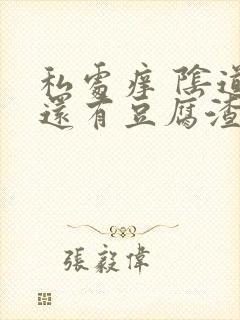 私處痒 陰道
還有豆腐渣
張毅偉